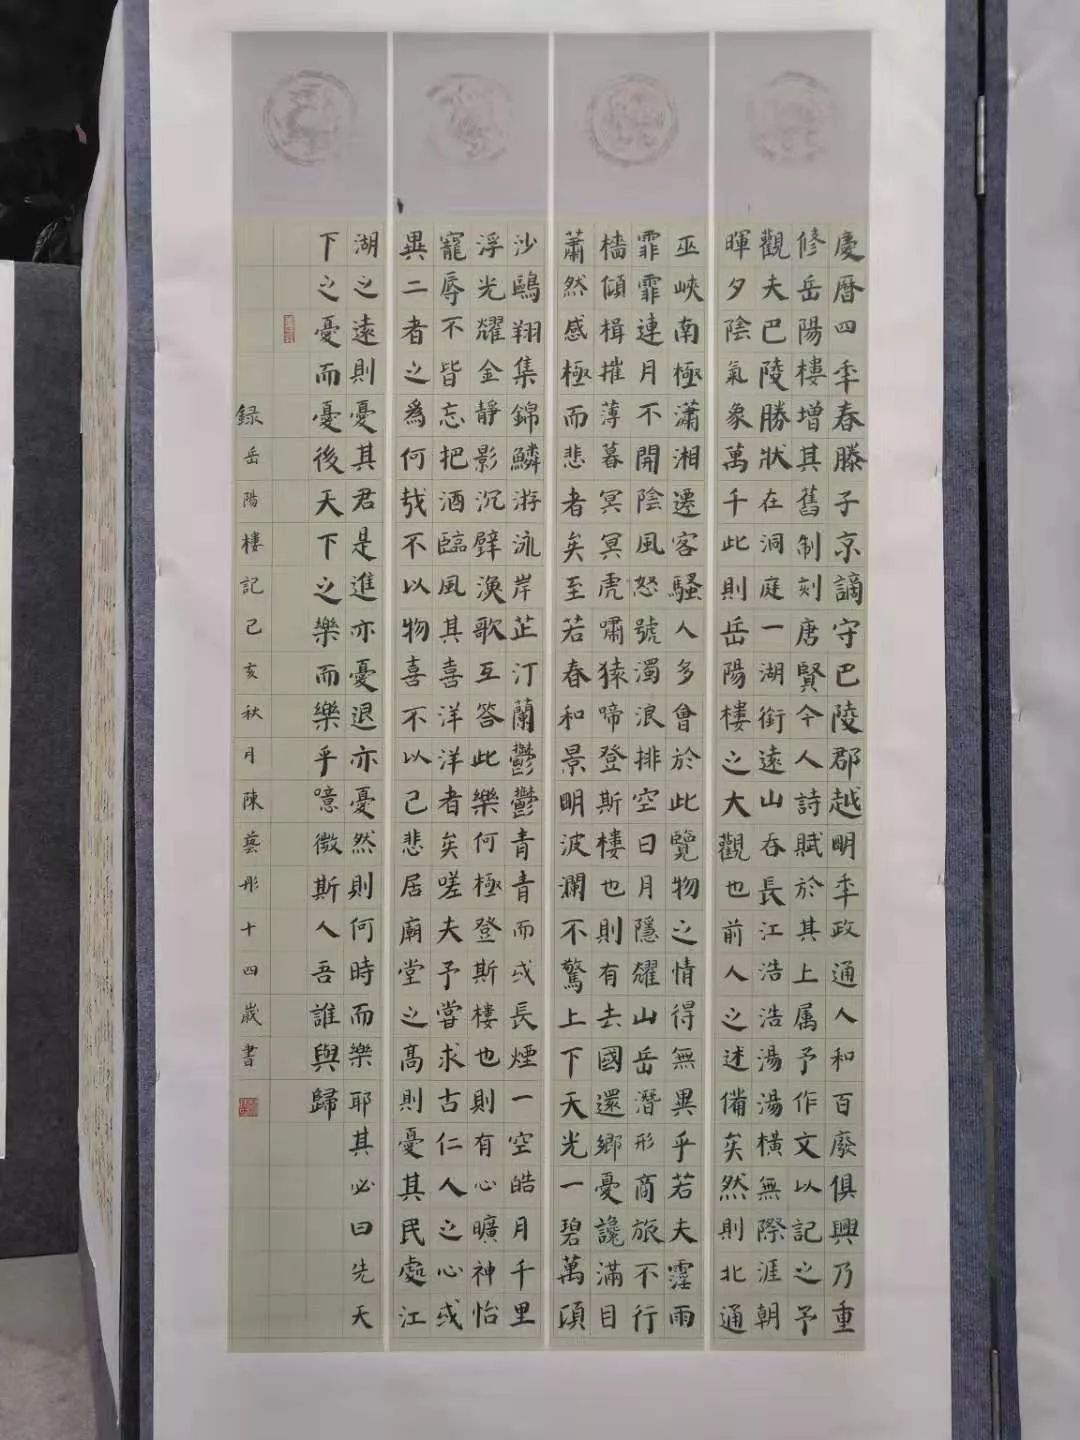 慶曆四秊春滕子京謫守巴陵郡越眀秊政通人和百廢俱興乃重
修岳陽樓增其舊制刻唐賢今人詩賦於其上属予作文以記之予
觀夫巴陵勝狀在洞庭一湖銜遠山吞長江浩浩湯湯橫無際涯朝
暉夕陰氣象萬千此則岳陽樓之大觀也前人之述備矣然則北通
巫峽南極瀟湘遷客騷人多會於此覽物之情得無異乎若夫霪雨
霏霏連月不開陰風怒號濁浪排空日月隱耀山岳潛形商旅不行
檣傾楫摧薄暮冥冥虎嘯猿啼登斯樓也則有去國還鄉憂讒滿目
蕭然感極而悲者矣至若春和景眀波瀾不驚上下天光一碧萬頃
沙鷗翔集錦鱗游泳岸芷汀蘭鬱鬱青青而或長煙一空皓月千里
浮光耀金靜影沉璧漁歌互答此樂何極登斯樓也則有心曠神怡
寵辱不皆忘把酒臨風其喜洋洋者矣嗟夫予嘗求古仁人之心或
異二者之爲何哉不以物喜不以己悲居廟堂之高則憂其民處江
湖之遠則憂其君是進亦憂退亦憂然則何時而樂耶其必曰先天
下之憂而憂後天下之樂而樂乎噫微斯人吾誰與歸
録岳陽樓記己亥秋月陳藝彤十四歲書